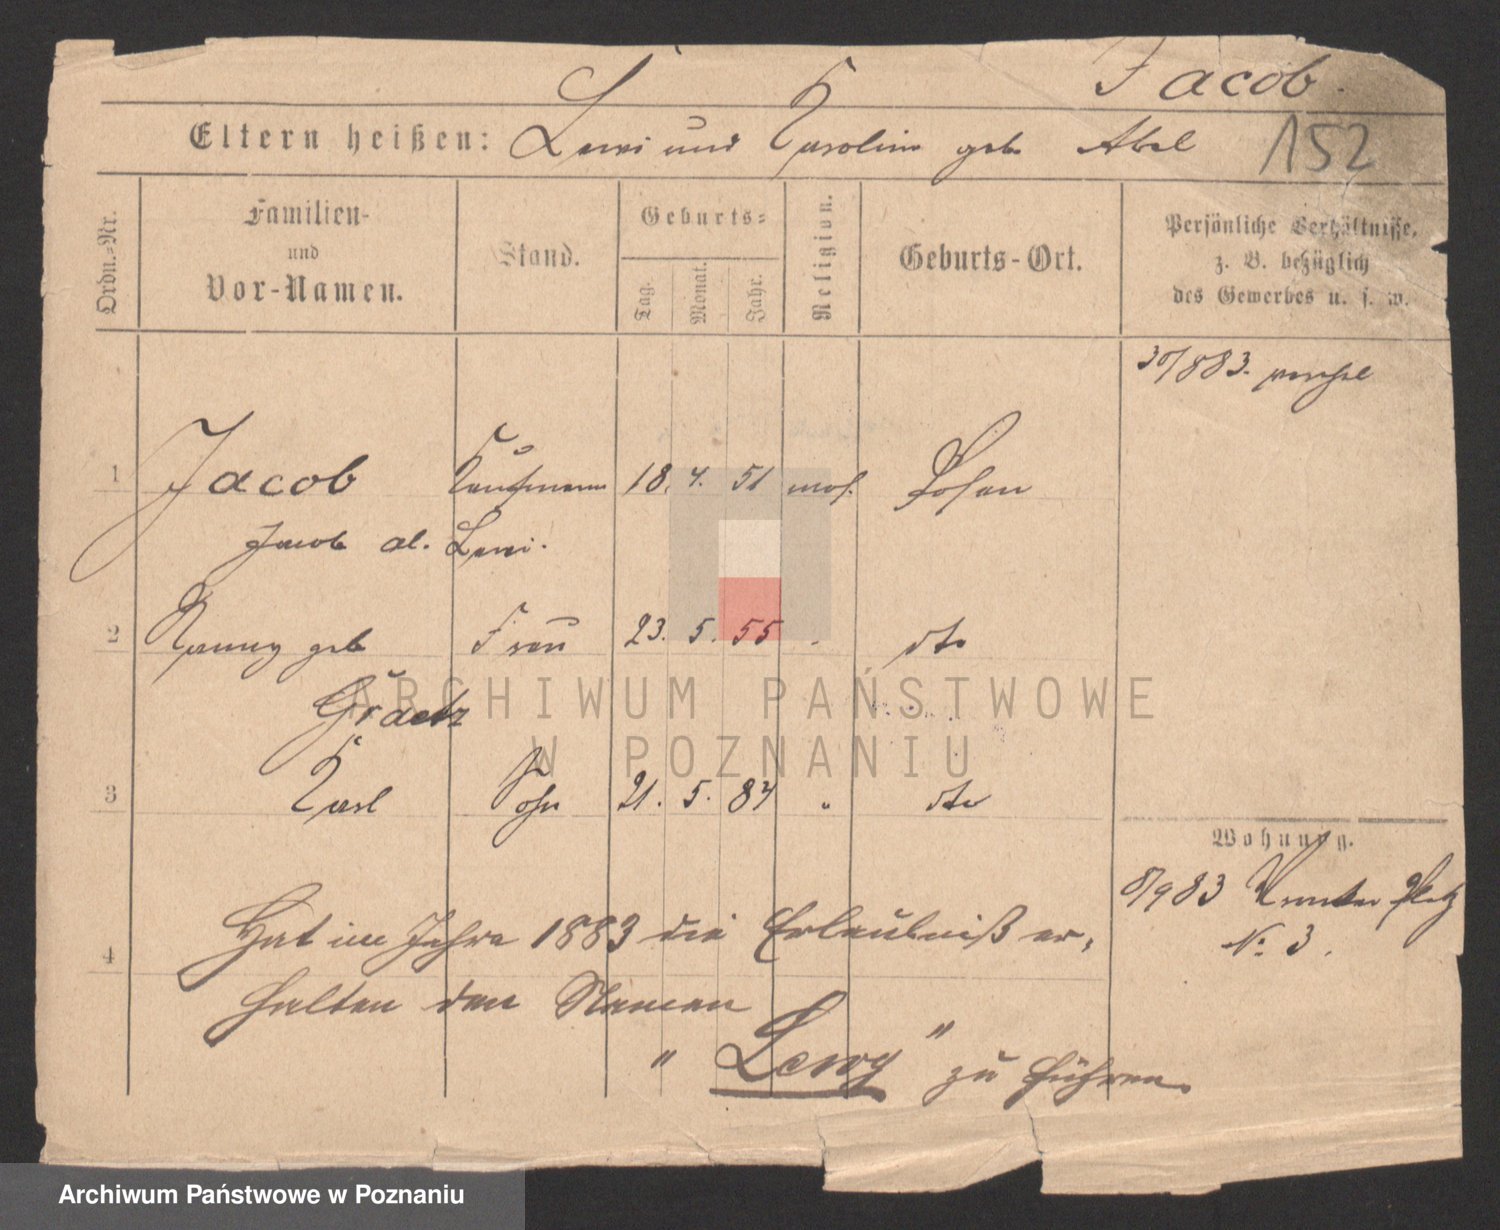 Jacob.
Eltern heißen: Lewi und Karoline geb Abel 152
Ordn.-Nr. Familien- und Vor-Namen. Stand. Geburts- Tag. Monat. Jahr. Religion. Geburts-Ort. Persönliche Verhältnisse, z. B. bezüglich des Gewerbes u. s. w.
30/8 83.
1 Jacob Kaufmann 18. 4. 51 mos. Posen
Jacob al. Lewi.
2 geb Frau 23. 5. 55 dto
Graetz
3 Karl Sohn 21. 5. 84 " dto
Wohnung.
8/9 83 Platz
No. 3.
4 Hat im Jahre 1883 die Erlaubniß er-
halten den Namen
"Lewy" zu führen.
ARCHIWUM PAŃSTWOWE
W POZNANIU
Archiwum Państwowe w Poznaniu